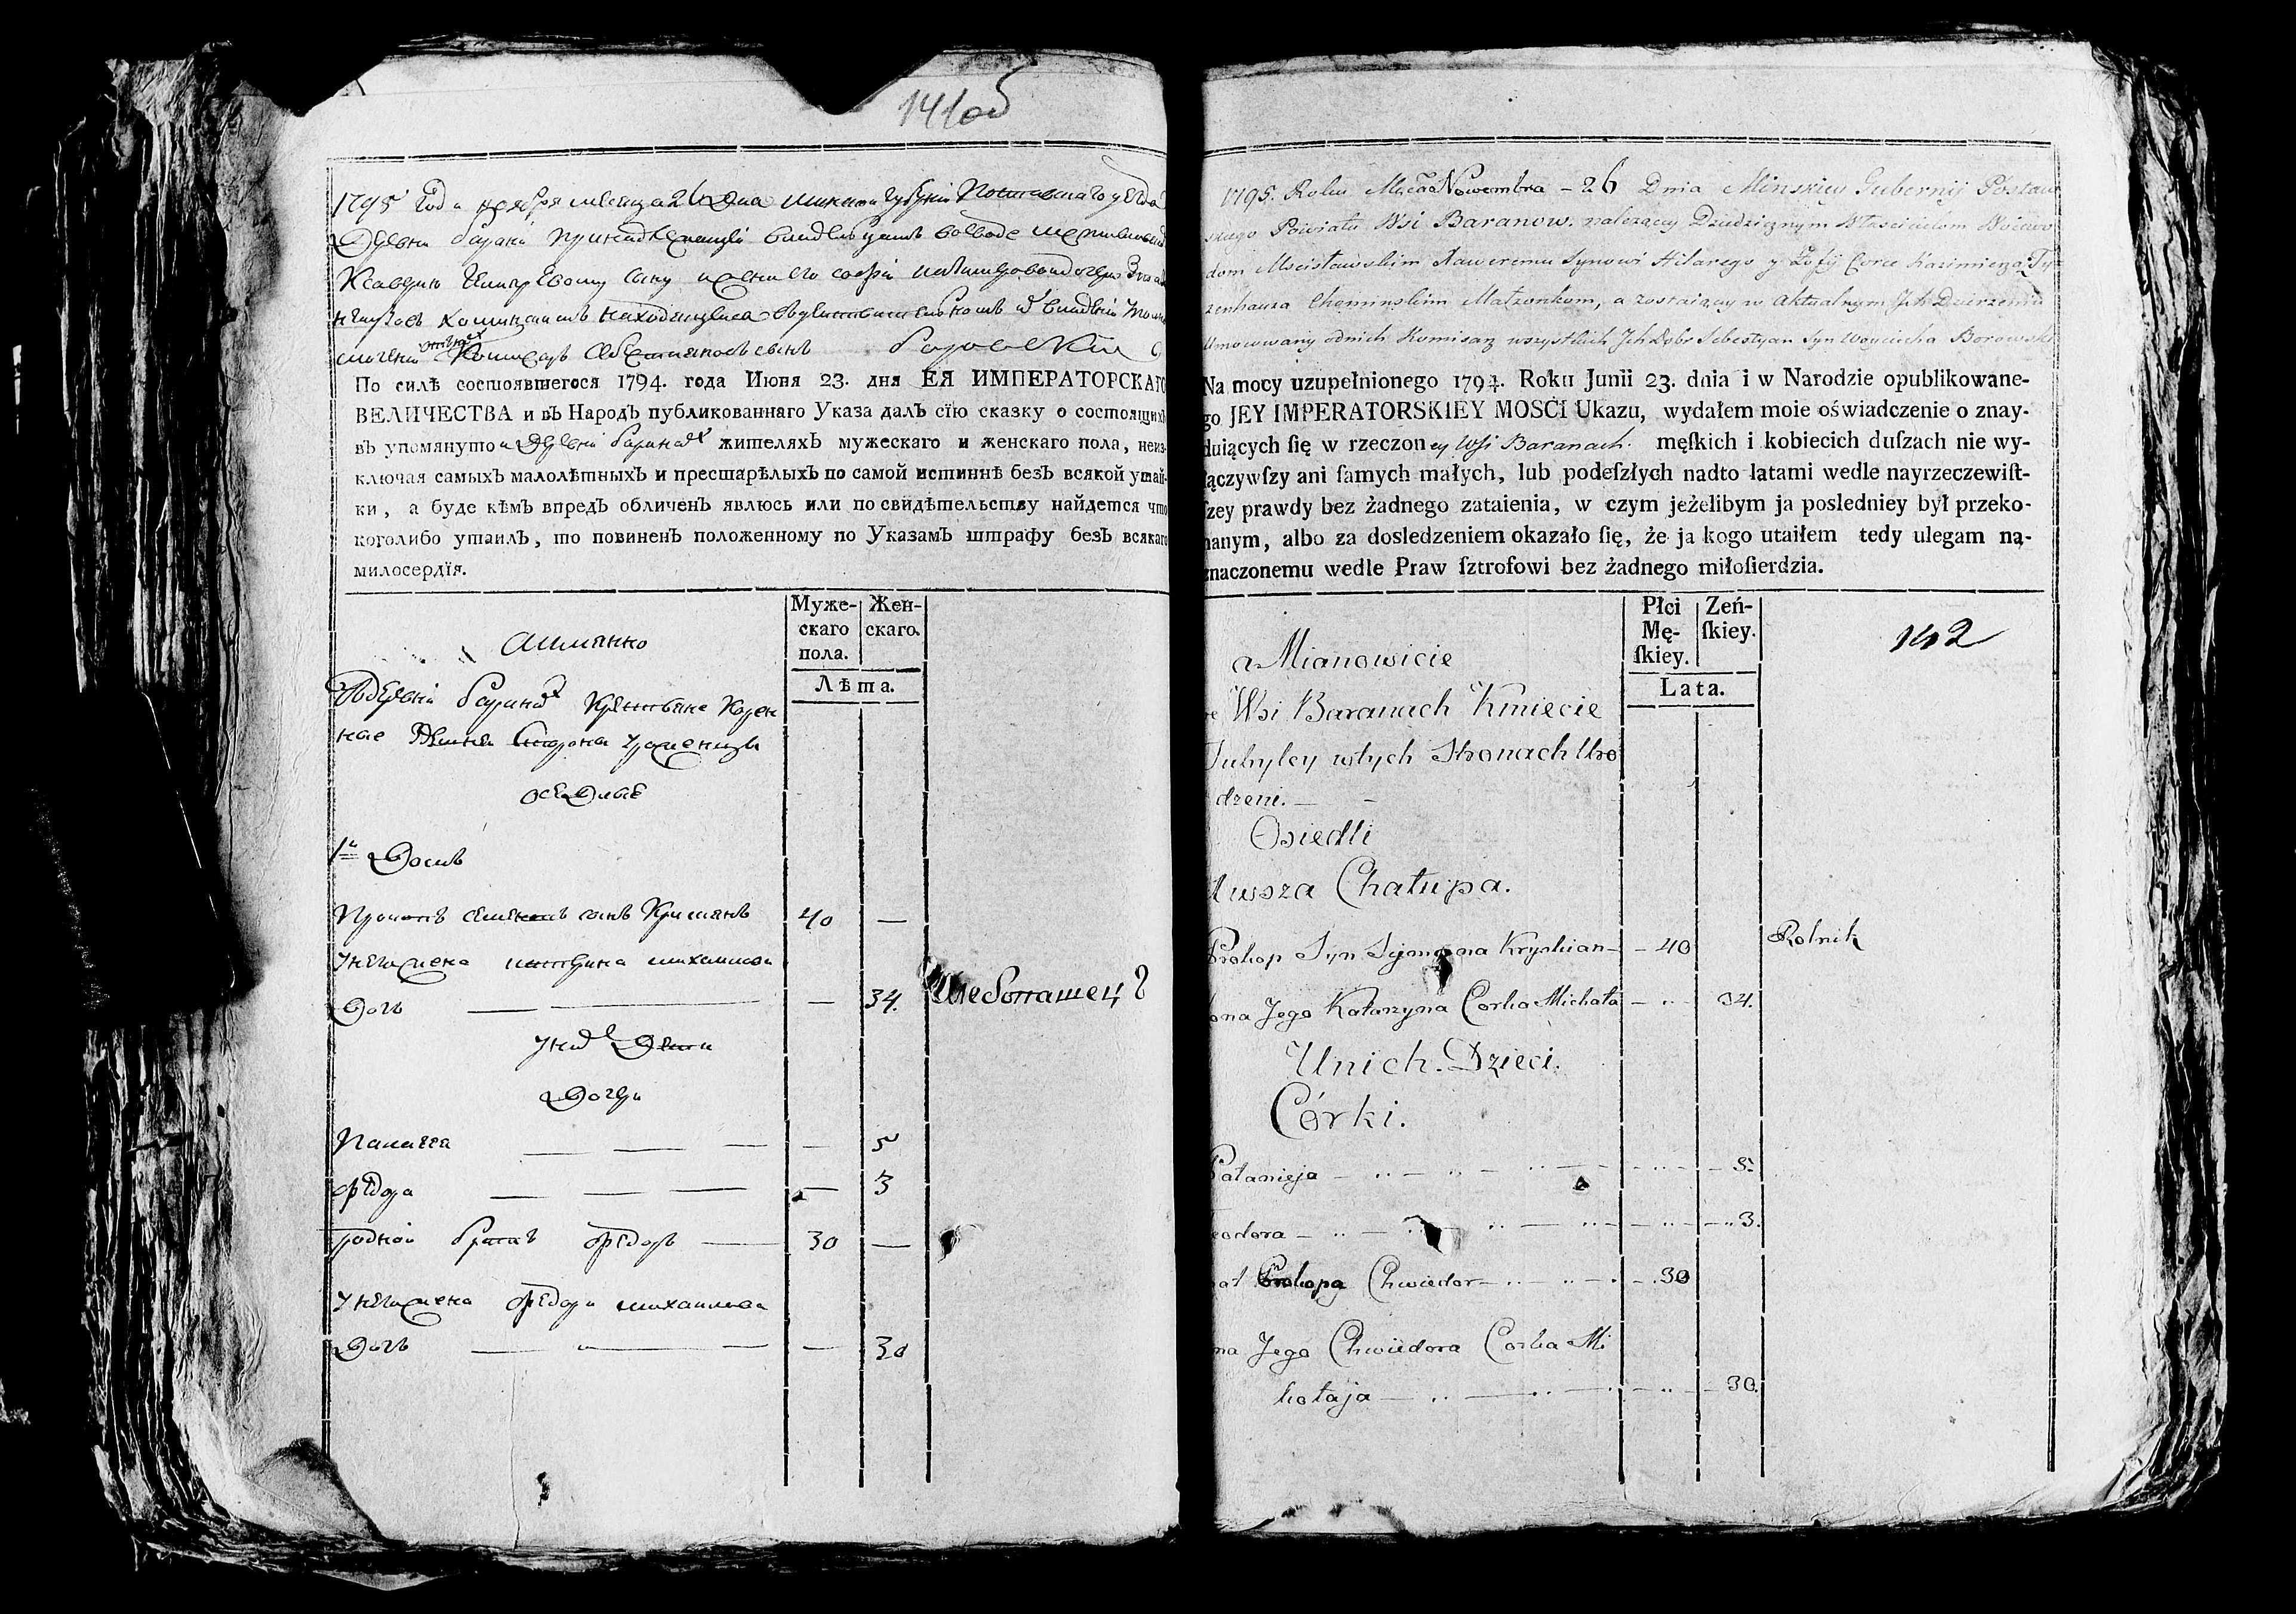 141 об
1795 года ноября месяца 26 дня Минской губернии Поставскаго уезда
Деревни Барань принадлежащей владельцамъ воеводе
Ксаверию сыну и жене его Софии
находящиеся
Комисаръ сынъ Боровский
По силѣ состоявшегося 1794. года Июня 23. дня ЕЯ ИМПЕРАТОРСКАГО
ВЕЛИЧЕСТВА и въ Народъ публикованнаго Указа далъ сїю сказку о состоящихъ
въ упомянутой деревни Баранахъ жителяхъ мужескаго и женскаго пола, неиз-
ключая самыхъ малолѣтныхъ и престарѣлыхъ по самой истиннѣ безъ всякой утай-
ки, а буде кѣмъ впредь обличенъ явлюсь или по свидѣтельству найдется что
коголибо утаилъ, то повиненъ положенному по Указамъ штрафу безъ всякаго
милосердїя.
Муже-
скаго
пола.
Жен-
скаго.
Лѣта.
а имянно
В деревни Баранахъ крестьяне корен
ные здешней стороны уроженцы
оседлые
1й Домъ
Прокопъ Семеновъ сынъ Кришянъ 40 —
У него жена Катерина Михайлова
дочь — — 34.
Хлебопашецъ
У нихъ дети
дочери
Паланея — — — — 5
Федора — — — — 3
родной братъ Федоръ — 30 —
У него жена Федора Михайлова
дочь — — — — 30
1795. Roku Mca Nowembra - 26 Dnia Minskiey Gubernij Postaw
skiego Powiatu Wsi Baranow. należącey Dziedzicznym Włascicielom Woiewo
dom Mscisławskim Xaweremu Synowi Hilarego y Zofij Corce Kazimierza Ty=
zenhauza Chomińskim Małzonkom, a zostaiący w Aktualnym Jch Dzierzeniu
Umocowany odnich Komisarz wszystkich Jch Dobr Sebestyan Syn Woyciecha Borowski
Na mocy uzupełnionego 1794. Roku Junii 23. dnia i w Narodzie opublikowane-
go JEY IMPERATORSKIEY MOSCI Ukazu, wydałem moie oświadczenie o znay-
duiących ſię w rzeczoney Wsi Baranach. męſkich i kobiecich duſzach nie wy-
łączywſzy ani ſamych małych, lub podeſzłych nadto latami wedle nayrzeczewiſt-
ſzey prawdy bez żadnego zataienia, w czym jeżelibym ja posledniey był przeko-
nanym, albo za dosledzeniem okazało ſię, że ja kogo utaiłem tedy ulegam ną-
znaczonemu wedle Praw ſztrofowi bez żadnego miłoſierdzia.
Płci
Mę-
ſkiey.
Zeń-
ſkiey.
Lata.
142
a Mianowicie
we Wsi Baranach Kmiecie
Tubyley wtych Stronach Uro
dzeni. —
Osiedli
Pierwsza Chałupa.
Prokop Syn Symona Kryshian - 40 Rolnik
Zona Jego Katarzyna Corka Michała - 34.
Unich. Dzieci.
Córki.
Pałanieja — 5.
Teodora — 3.
Brat Prokopa Chwiedor — 30
Zona Jego Chwiedora Corka Mi
kołaja — 30.